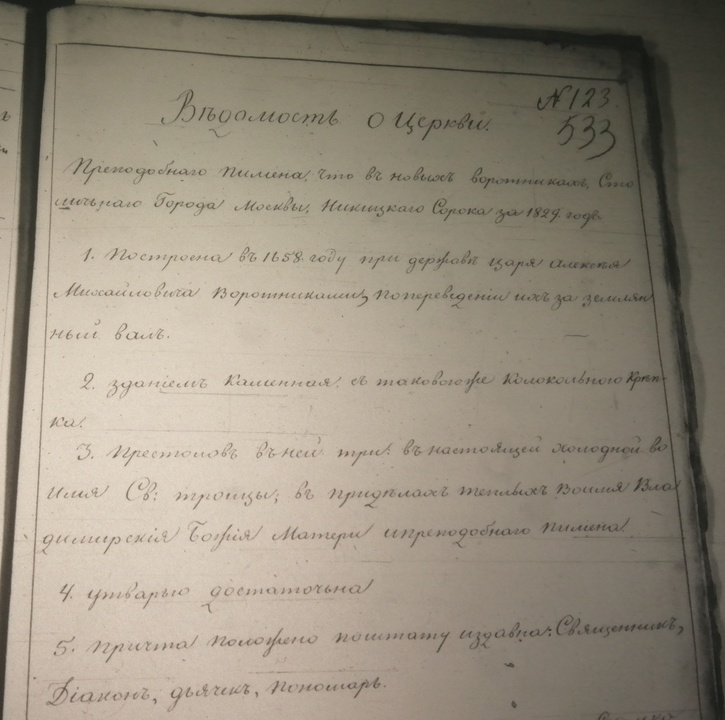 № 123.
Вѣдомость о Церкви.
533
Преподобнаго Пимена, что въ новыхъ воротникахъ, Сто
личьнаго Города Москвы, Никицкаго Сорока за 1829 годъ
1. Построена въ 1658. году при державѣ Царя Алексѣя
Михайловича Воротниками, попереведеніи ихъ за землян
ный валъ.
2. зданіемъ Каменная, съ таковоюже Колокольнею Крѣп-
ка.
3. Престоловъ въ ней три: въ настоящей холодной во
Имя Св: троицы; въ придѣлахъ теплыхъ Воимя Вла
димирскія Божія Матери ипреподобнаго Пимена
4. утварью достаточьна
5. Причта положено поштату издавна: Священникъ,
Діаконъ, дьячекъ, Пономарь.